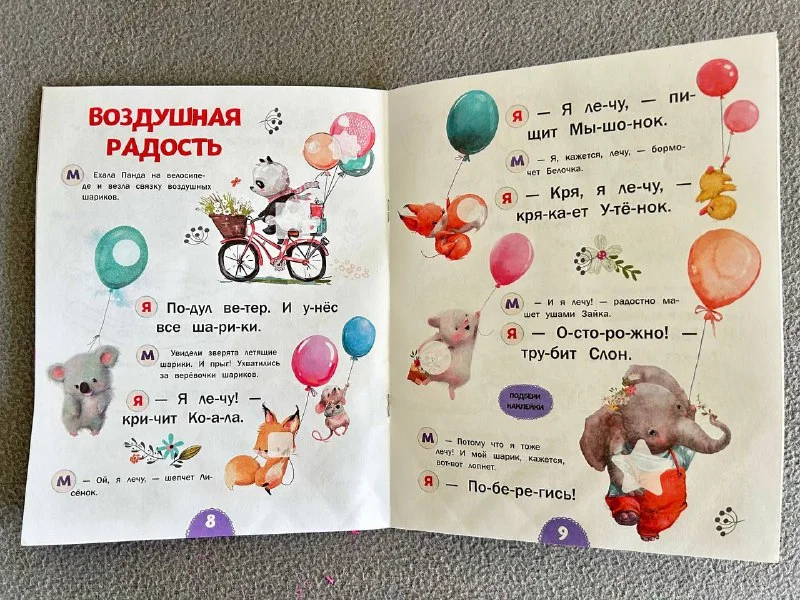 ВОЗДУШНАЯ
РАДОСТЬ
М Ехала Панда на велосипе-
де и везла связку воздушных
шариков.
Я По-дул ве-тер. И у-нёс
все ша-ри-ки.
М Увидели зверята летящие
шарики. И прыг! Ухватились
за верёвочки шариков.
Я — Я ле-чу! —
кри-чит Ко-а-ла.
М — Ой, я лечу, — шепчет Ли-
сёнок.
8
Я — Я ле-чу, — пи-
щит Мы-шо-нок.
М — Я, кажется, лечу, — бормо-
чет Белочка.
Я — Кря, я ле-чу, —
кря-ка-ет У-тё-нок.
М — И я лечу! — радостно ма-
шет ушами Зайка.
Я — О-сто-ро-жно! —
тру-бит Слон.
ПОДБЕРИ
НАКЛЕЙКИ
М — Потому что я тоже
лечу! И мой шарик, кажется,
вот-вот лопнет.
Я — По-бе-ре-гись!
9